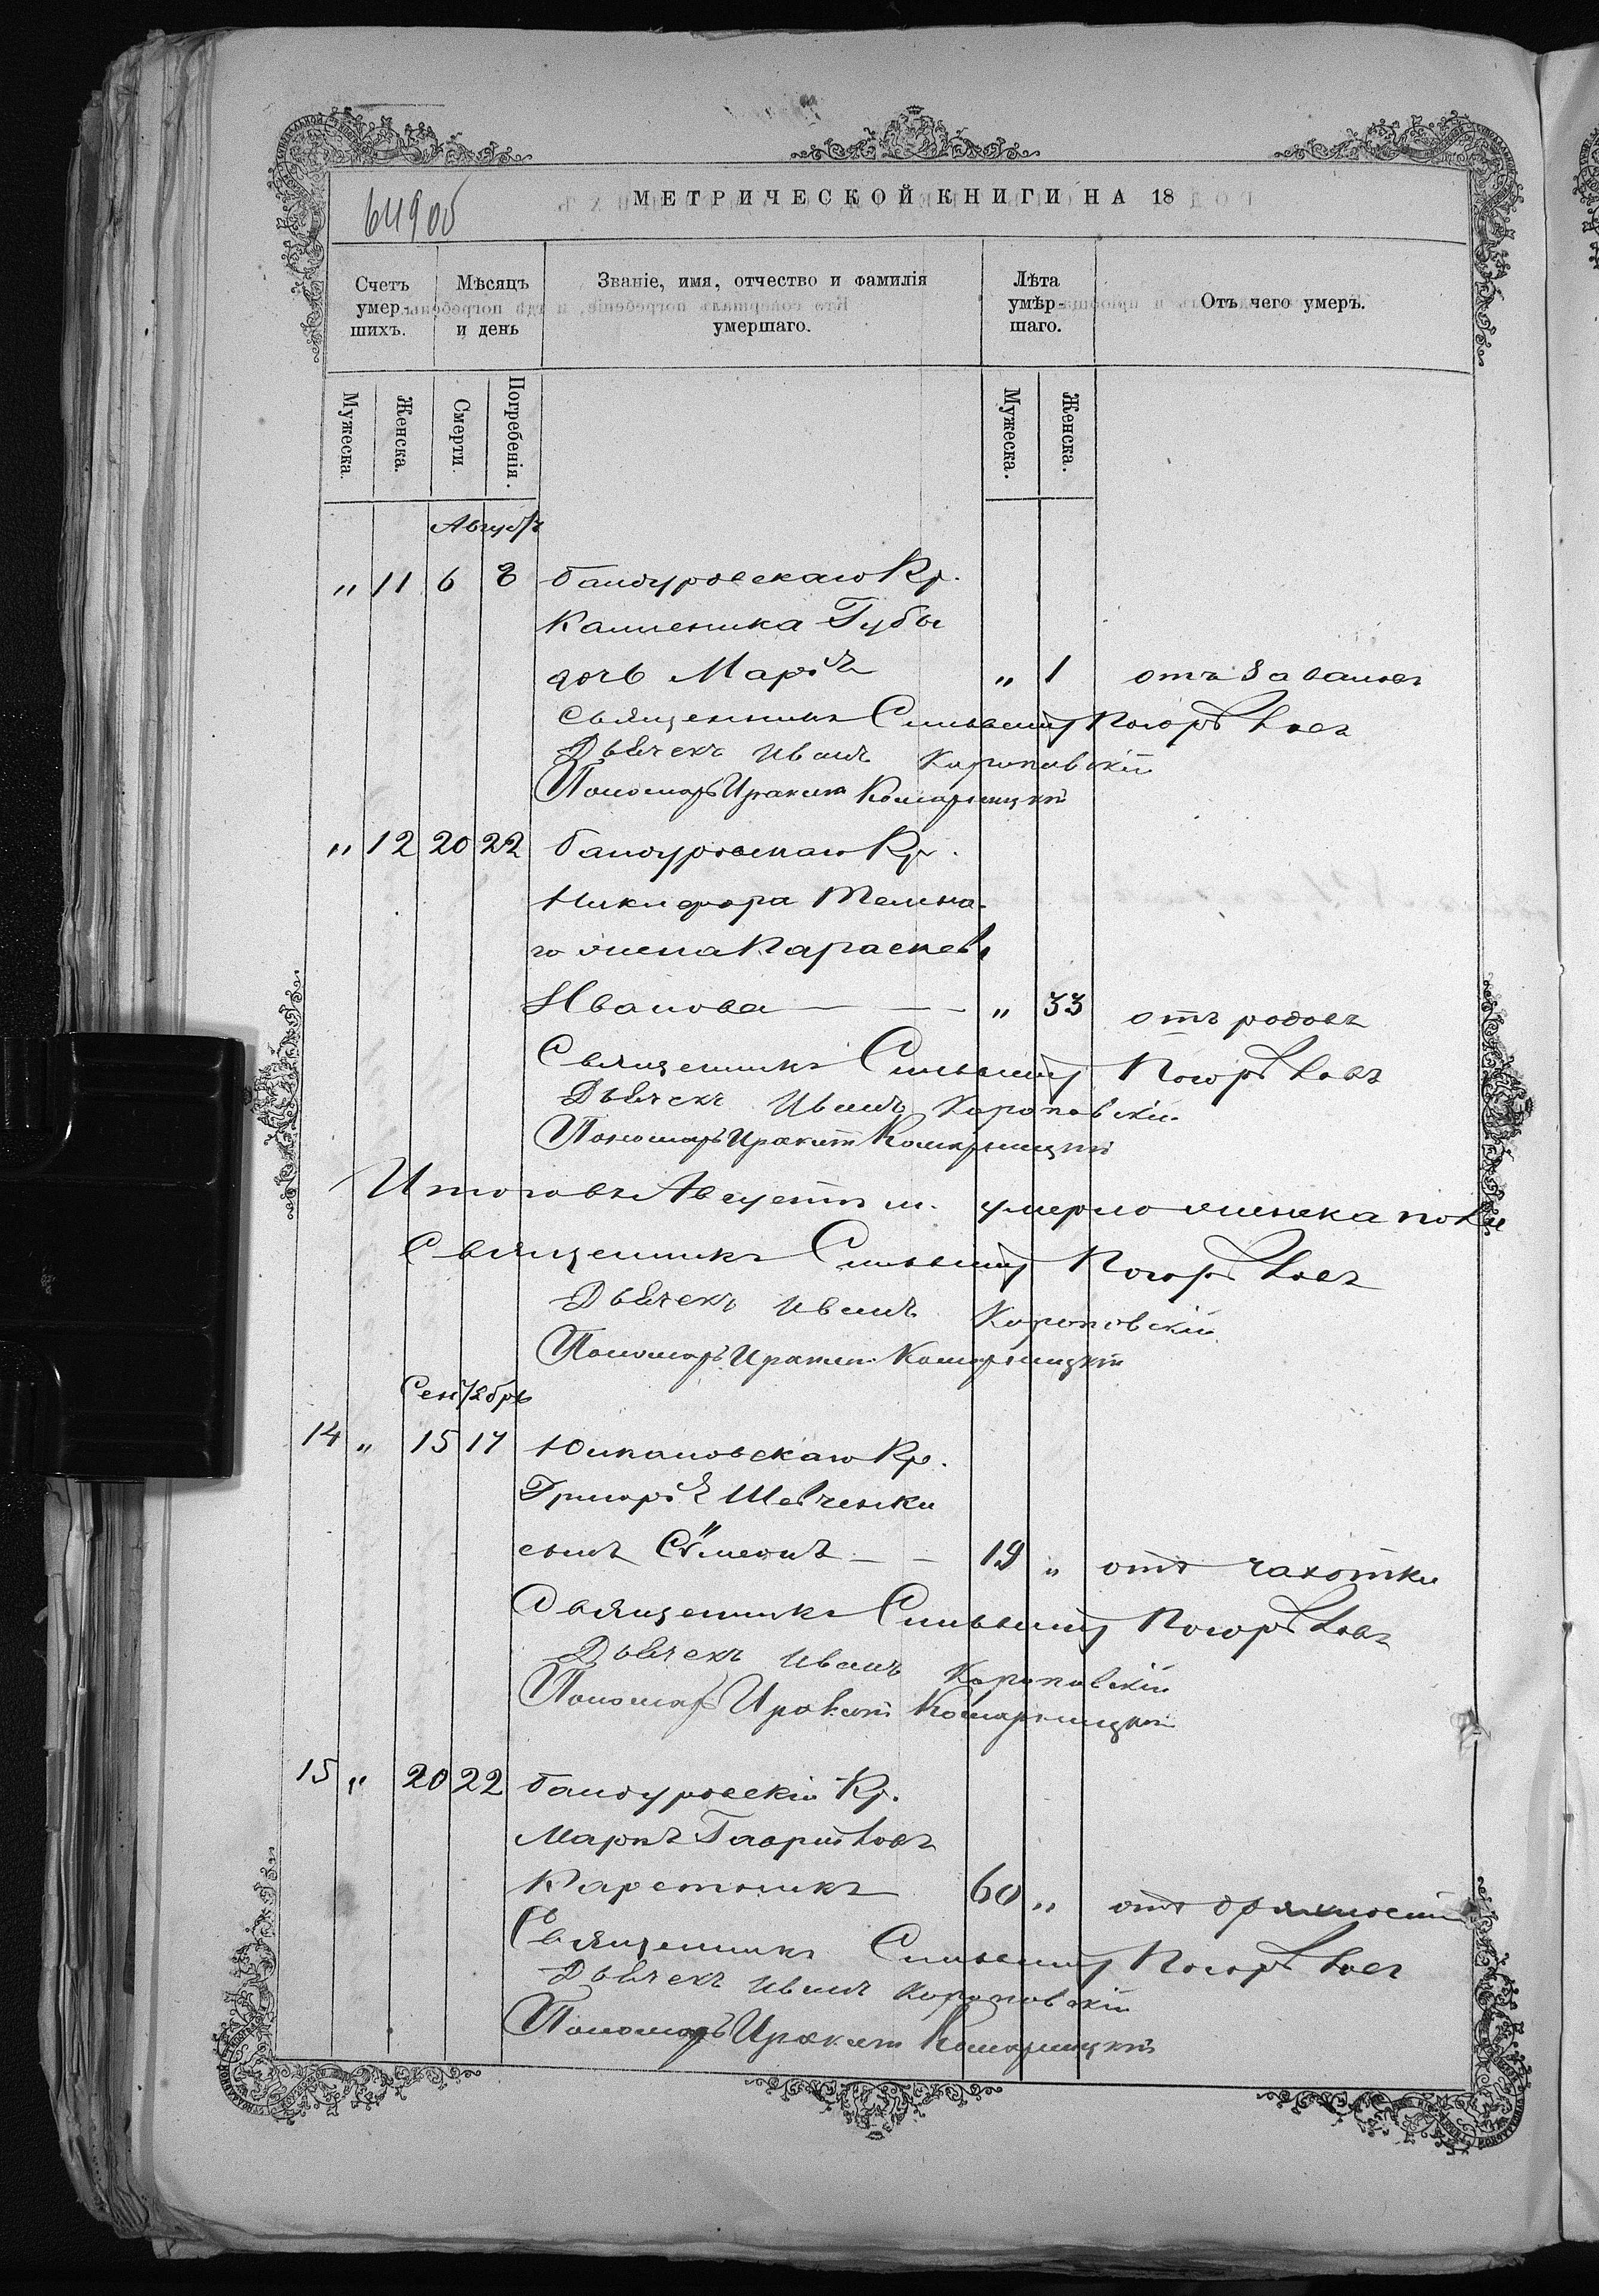 649об
МЕТРИЧЕСКОЙ КНИГИ НА 18
Счетъ умер- шихъ.
Мѣсяцъ и день
Званіе, имя, отчество и фамилія умершаго.
Лѣта умѣр- шаго.
Отъ чего умеръ.
Мужеска.
Женска.
Смерти.
Погребенія.
Мужеска.
Женска.
Августъ
" 11 6 8 бандуровскаго Кр.
Каленика Губы
дочь Марія " 1 отъ
Священникъ Сильвестръ Погорѣловъ
Дьячекъ Иванъ Короповскій
Пономарь Ираклій Комарницкій
" 12 20 22 бандуровскаго Кр.
Никифора Темна-
го жена Параскева
Иванова " 33 отъ родовъ
Священникъ Сильвестръ Погорѣловъ
Дьячекъ Иванъ Короповскій
Пономарь Ираклій Комарницкій
Итого въ Августѣ м. умерло женска пола
Священникъ Сильвестръ Погорѣловъ
Дьячекъ Иванъ Короповскій
Пономарь Ираклій Комарницкій
Сентябрь
14 " 15 17 Кр.
Григорія Шевченки
сынъ Сѵмеонъ 19 " отъ чахотки
Священникъ Сильвестръ Погорѣловъ
Дьячекъ Иванъ Короповскій
Пономарь Ираклій Комарницкій
15 " 20 22 бандуровскій Кр.
Маркъ Гавриловъ
Каретникъ 60 " отъ дряхлости
Священникъ Сильвестръ Погорѣловъ
Дьячекъ Иванъ Короповскій
Пономарь Ираклій Комарницкій